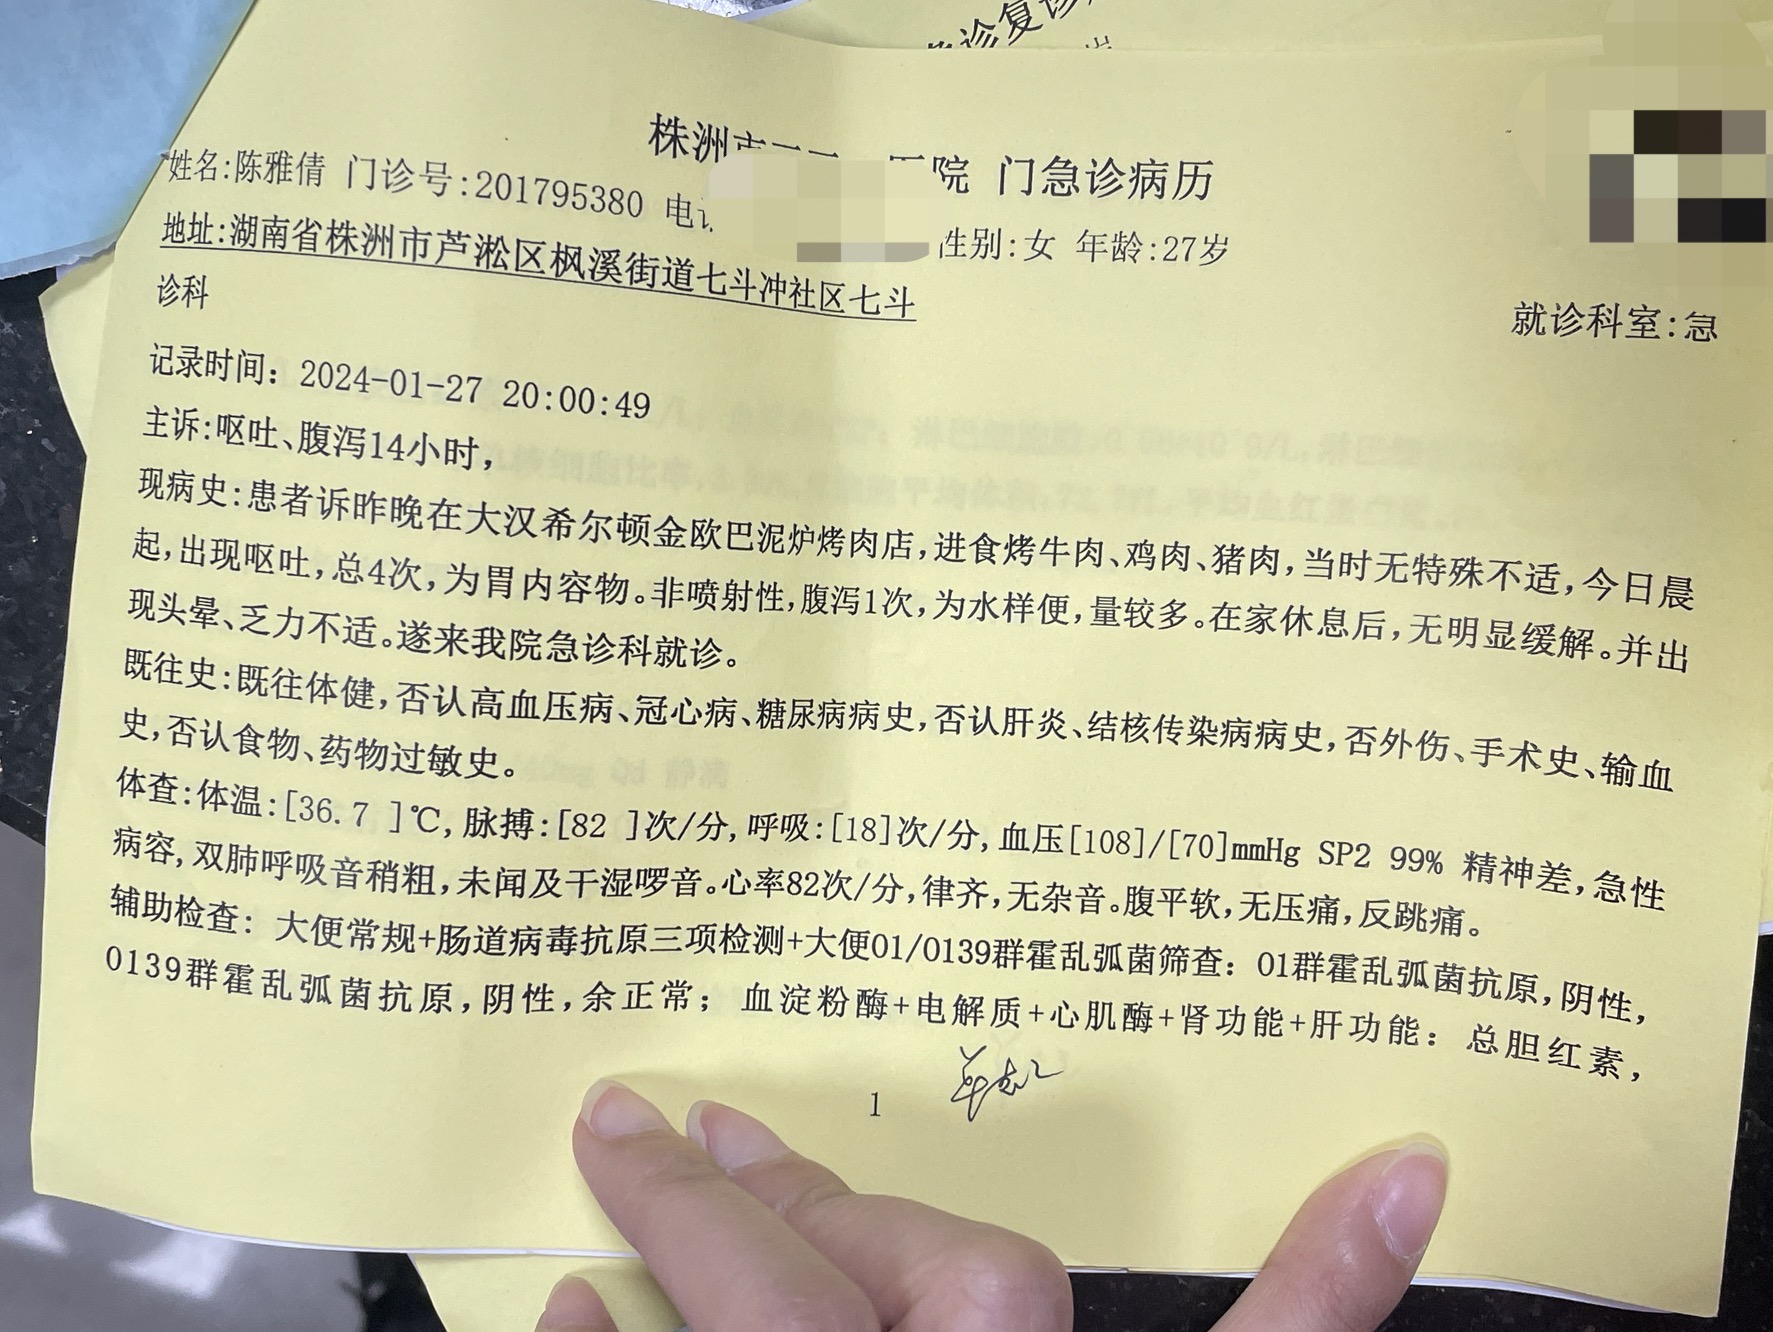 诊复诊
株洲市 院 门急诊病历
姓名:陈雅倩 门诊号:201795380 电 性别:女 年龄:27岁
地址:湖南省株洲市芦淞区枫溪街道七斗冲社区七斗 就诊科室:急
诊科
记录时间: 2024-01-27 20:00:49
主诉:呕吐、腹泻14小时,
现病史:患者诉昨晚在大汉希尔顿金欧巴泥炉烤肉店,进食烤牛肉、鸡肉、猪肉,当时无特殊不适,今日晨
起,出现呕吐,总4次,为胃内容物。非喷射性,腹泻1次,为水样便,量较多。在家休息后,无明显缓解。并出
现头晕、乏力不适。遂来我院急诊科就诊。
既往史:既往体健,否认高血压病、冠心病、糖尿病病史,否认肝炎、结核传染病病史,否外伤、手术史、输血
史,否认食物、药物过敏史。
体查:体温:[36.7 ]℃,脉搏:[82 ]次/分,呼吸:[18]次/分,血压[108]/[70]mmHg SP2 99% 精神差,急性
病容,双肺呼吸音稍粗,未闻及干湿啰音。心率82次/分,律齐,无杂音。腹平软,无压痛,反跳痛。
辅助检查: 大便常规+肠道病毒抗原三项检测+大便O1/O139群霍乱弧菌筛查: O1群霍乱弧菌抗原,阴性,
O139群霍乱弧菌抗原,阴性,余正常; 血淀粉酶+电解质+心肌酶+肾功能+肝功能: 总胆红素,
1